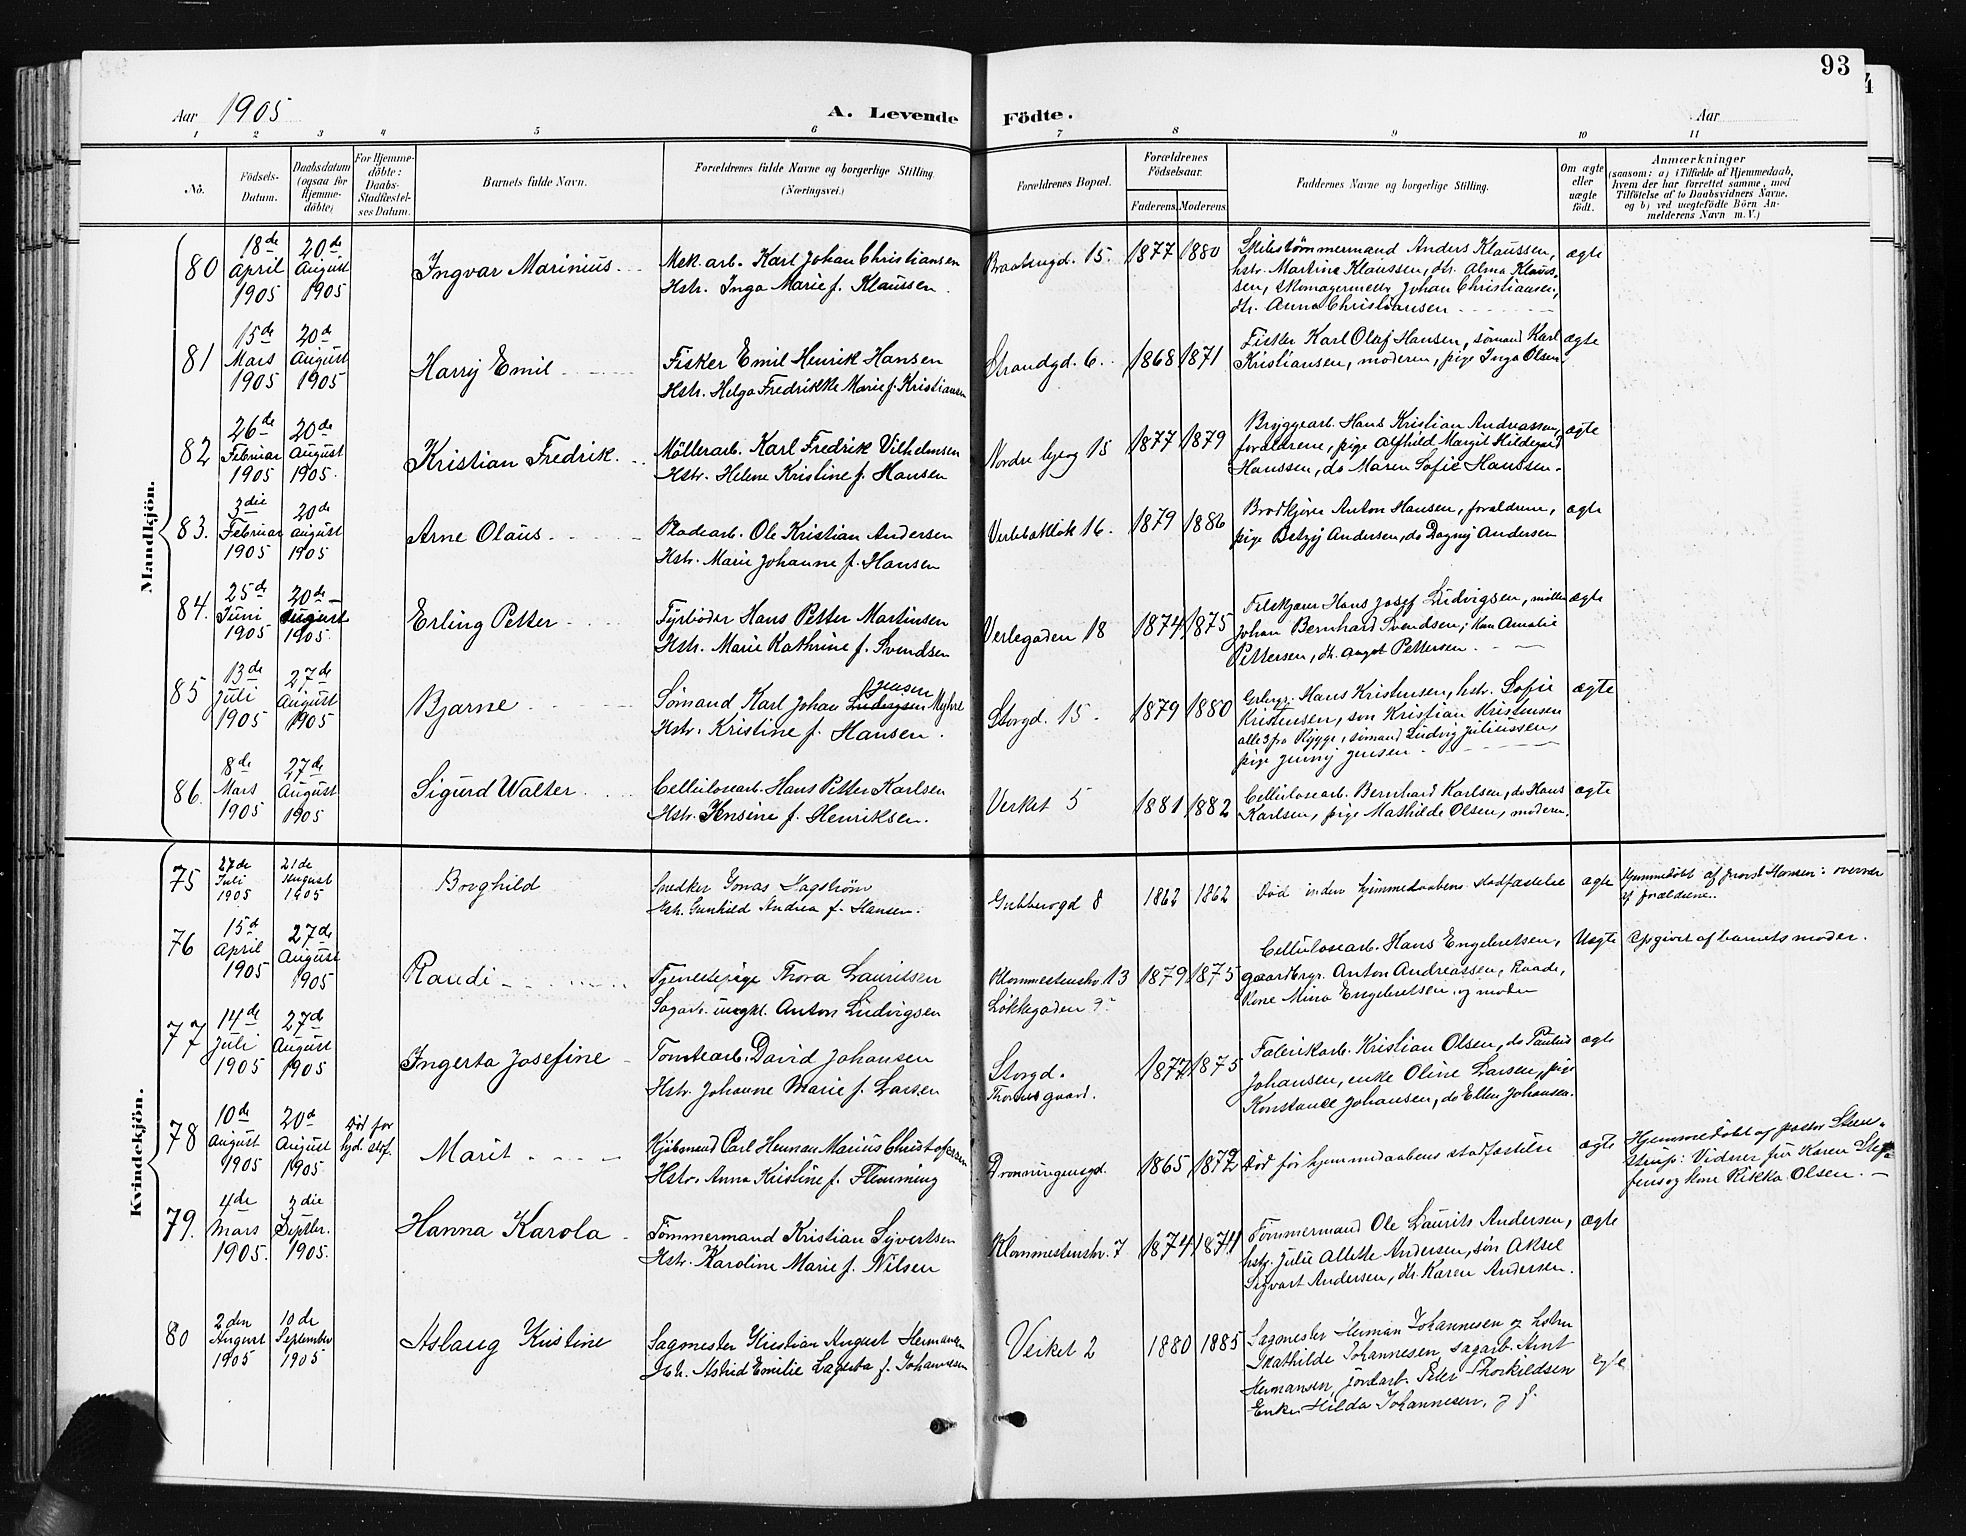 93
Aar 1905
A. Levende Födte.
Aar
1 2 3 4 5 6 7 8 9 10 11
Nô.
Födsels-Datum.
Daabsdatum (ogsaa for Hjemme-döbte)
For Hjemme-döbte: Daabs-Stadfæstel-ses Datum.
Barnets fulde Navn.
Forældrenes fulde Navne og borgerlige Stilling. (Næringsvei.)
Forældrenes Bopæl.
Forældrenes Födselsaar.
Faderens. Moderens.
Faddernes Navne og borgerlige Stilling.
Om ægte eller uægte födt.
Anmærkninger
(saasom: a) i Tilfælde af Hjemmedaab,
hvem der har forrettet samme, med
Tilföielse af to Daabsvidners Navne,
og b) ved uegtefödte Börn An-
melderens Navn m. V.)
Mandkjön.
80 18de April 1905 20de August 1905 Ingvar Marinius
Mek. arb. Karl Johan Christiansen
Hstr. Inga Marie f. Klaussen
Braatengd. 15. 1877 1880
Skibstømmermand Anders Klaussen,
hstr. Martine Klaussen, dtr. Alma Klaus-
sen, Skomagermester Johan Christiansen,
dtr. Anna Christiansen
ægte
81 15de Mars 1905 20de August 1905 Harry Emil
Fisker Emil Henrik Hansen
Hstr. Helga Fredrikke Marie f. Kristiansen
Strandgd. 6. 1868 1871
Fisker Karl Olaf Hansen, sømand Karl
Kristiansen, moderen, pige Inga Olsen.
ægte
82 26de Februar 1905 20de August 1905. Kristian Fredrik.
Möllerarb. Karl Fredrik Vilhelmsen
Hstr. Helene Kristine f. Hansen
Nordre 15 1877 1879
Bryggearb. Hans Kristian Andreassen,
forældrene, pige Alfhild Margit Hildegard
Hanssen, do Maren Sofie Hanssen.
ægte
83. 3die Februar 1905 20de August 1905 Arne Olaus.
Pladearb. Ole Kristian Andersen
Hstr. Marie Johanne f. Hansen
16. 1879 1886
Brødkjører Anton Hansen, forældrene,
pige Betzy Andersen, do Dagny Andersen
ægte
84. 25de Juni 1905 20de August 1905. Erling Petter
Fyrbøder Hans Petter Martinsen
Hstr. Marie Kathrine f. Svendsen
Verlegaden 18 1874 1875
Hans Josef Ludvigsen, møller
Johan Bernhard Svendsen, Amalie
Pettersen, dtr. Pettersen.
ægte
85 13de Juli 1905 27de August 1905 Bjarne
Jensen
Sømand Karl Johan Ludvigsen Myhre
Hstr. Kristine f. Hansen.
Storgd. 15. 1879 1880
Grbrgr. Hans Kristensen, hstr. Sofie
Kristensen, søn Kristian Kristensen
alle 3 fra Rygge, sømand Ludvig Juliussen,
pige Jenny Jensen
ægte
86. 8de Mars 1905 27de August 1905 Sigurd Walter
Cellulosearb. Hans Petter Karlsen
Hstr. Jensine f. Henriksen.
Verket 5 1881 1882
Cellulosearb. Bernhard Karlsen, do Hans
Karlsen, pige Mathilde Olsen, moderen.
ægte
Kvindekjön.
75 27de Juli 1905 21de August 1905 Borghild
Snedker Jonas Hagstrøm
Hstr. Gunhild Andrea f. Hansen.
Gubberogd 8 1862 1862
Død inden hjemmedaabens stadfæstelse
ægte
Hjemmedøbt af provst Hansen: overvær
af forældrene.
76 15de April 1905 27de August 1905 Raudi
Tjenestepige Thora Lauritsen
Sagarb. ungkl. Anton Ludvigsen
13
Løkkegaden 9 1879 1875
Cellulosearb. Hans Engebretsen,
gaardbrgr. Anton Andreassen, Raade,
Kone Mina Engebretsen og moder
Uægte
Opgivet af barnets moder.
77 14de Juli 1905 27de August 1905 Ingerta Josefine
Tomtearb. David Johansen
Hstr. Johanne Marie f. Larsen
Storgd.
Thornesgaard. 1877 1875
Fabrikarb. Kristian Olsen, do
Johansen, enke Oline Larsen, pige
Konstance Johansen, do Ellen Johansen.
ægte
78 10de August 1905 20de August 1905 Død før hjd. stf. Marit
Kjøbmand Carl Herman Marius Christofersen
Hstr. Anna Kristine f. Flemming
Dronningensgd. 1865 1872
Død før hjemmedaabens stadfæstelse
ægte
Hjemmedøbt af pastor Steen-
strup: Vidner, frk Karen Stef-
fens og kone Rikka Olsen.
79. 4de Mars 1905. 3die Septbr. 1905. Hanna Karola
Tømmermand Kristian Syvertsen
Hstr. Karoline Marie f. Nilsen
7 1874 1874
Tømmermand Ole Laurits Andersen,
hstr. Julie Allette Andersen, søn Aksel
Sigvart Andersen, dtr. Karen Andersen.
ægte
80 2den August 1905 10de September 1905 Aslaug Kristine
Sagmester Kristian August Hermansen
Hstr. Astrid Emilie Lagerta f. Johannesen
Verket 2 1880 1885
Sagmester Herman Johannesen og hstru
Mathilde Johannesen, sagarb. Arnt
Hermansen, jordarb. Peter Thorkildsen
Enke Hilda Johannesen,
ægte